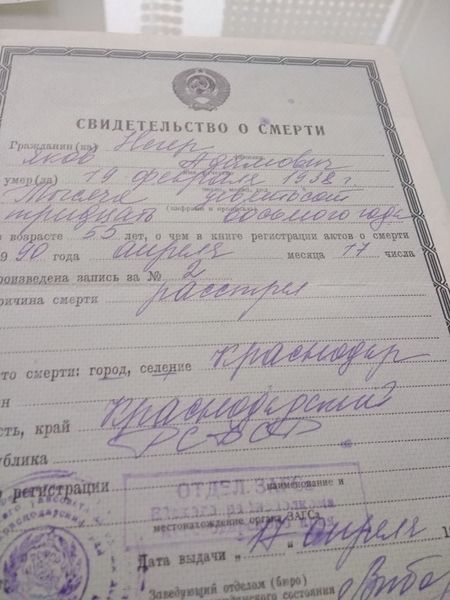 СВИДЕТЕЛЬСТВО О СМЕРТИ
Гражданин(ка) Неир
Яков Адамович
умер(ла) 19 февраля 1938 г.
Тысяча девятьсот
тридцать восьмого года
в возрасте 55 лет, о чем в книге регистрации актов о смерти
1990 года апреля месяца 17 числа
произведена запись за № 2
Причина смерти расстрел
то смерти: город, селение Краснодар
он
сть, край Краснодарский
публика РСФСР
регистрации
ОТДЕЛ ЗАГС
наименование и
местонахождение органа ЗАГСа
Дата выдачи „17" апреля 1
Заведующий отделом (бюро)